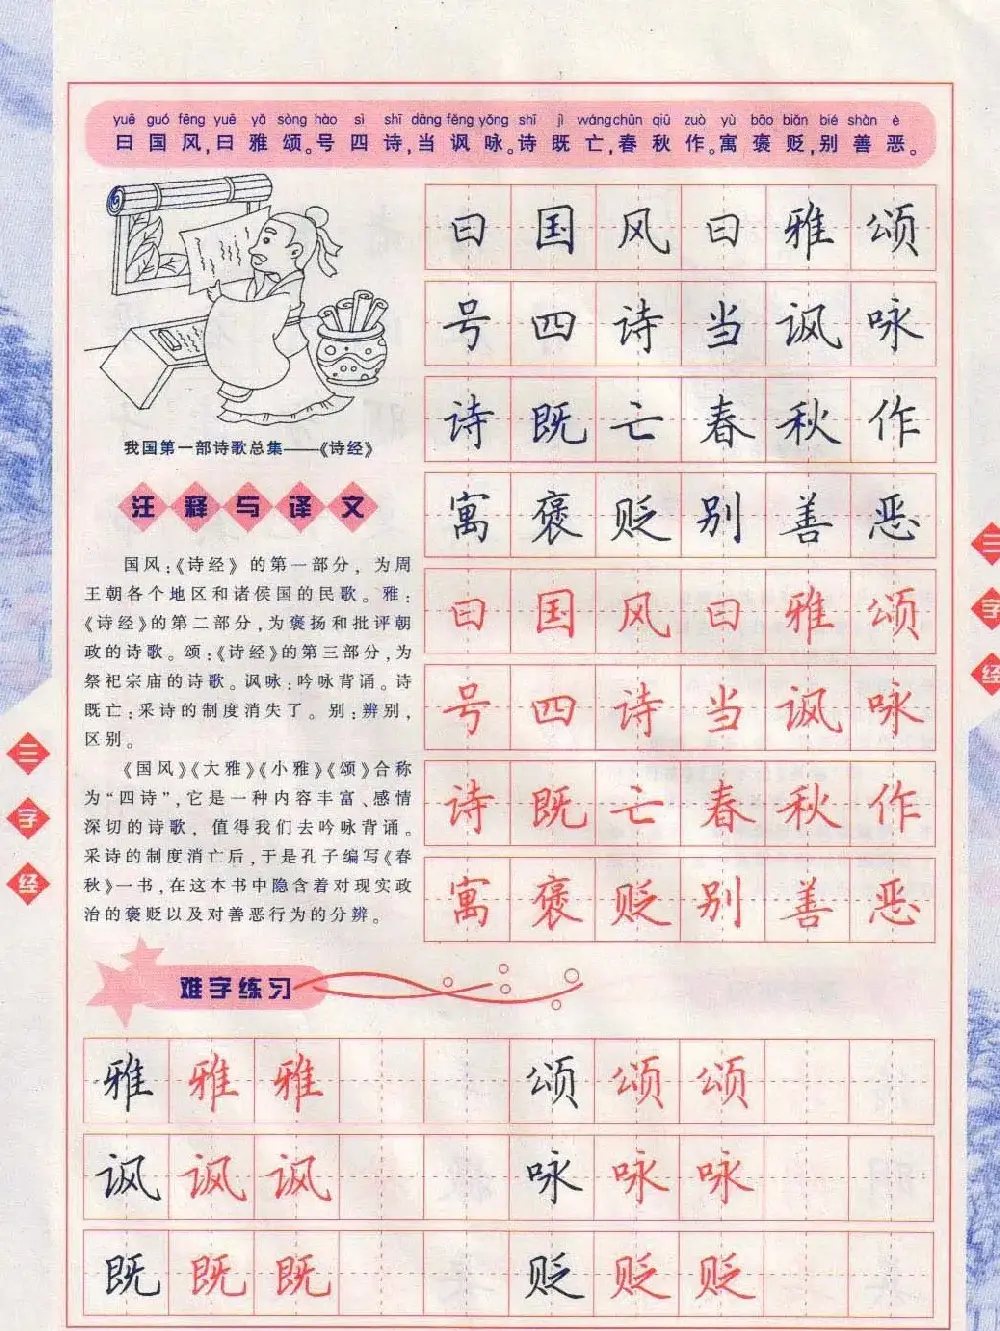 yuē guó fēng yuē yǎ sòng hào sì shī dāng fěng yǒng shī jì wáng chūn qiū zuò yù bāo biǎn bié shàn è
曰国风,曰雅颂。号四诗,当讽咏。诗既亡,春秋作。寓褒贬,别善恶。
我国第一部诗歌总集——《诗经》
注释与译文
国风:《诗经》的第一部分,为周
王朝各个地区和诸侯国的民歌。雅:
《诗经》的第二部分,为褒扬和批评朝
政的诗歌。颂:《诗经》的第三部分,为
祭祀宗庙的诗歌。讽咏:吟咏背诵。诗
既亡:采诗的制度消失了。别:辨别,
区别。
《国风》《大雅》《小雅》《颂》合称
为“四诗”,它是一种内容丰富、感情
深切的诗歌,值得我们去吟咏背诵。
采诗的制度消亡后,于是孔子编写《春
秋》一书,在这本书中隐含着对现实政
治的褒贬以及对善恶行为的分辨。
曰国风曰雅颂
号四诗当讽咏
诗既亡春秋作
寓褒贬别善恶
曰国风曰雅颂
号四诗当讽咏
诗既亡春秋作
寓褒贬别善恶
三字经
三字经
难字练习
雅雅雅 颂颂颂
讽讽讽 咏咏咏
既既既 贬贬贬